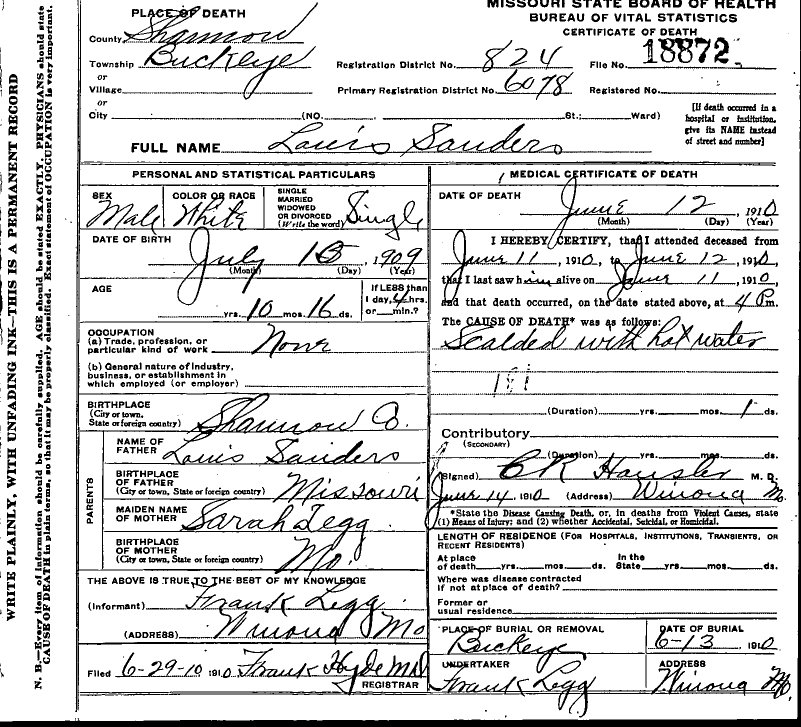 MISSOURI STATE BOARD OF HEALTH
BUREAU OF VITAL STATISTICS
CERTIFICATE OF DEATH
PLACE OF DEATH
County Shannon
Township Buckeye
or
Village
or
City (NO. St.; Ward)
Registration District No. 824 File No. 18872
Primary Registration District No. 6078 Registered No.
[If death occurred in a
hospital or institution,
give its NAME instead
of street and number]
FULL NAME Louis Sanders
PERSONAL AND STATISTICAL PARTICULARS
SEX Male
COLOR OR RACE White
SINGLE
MARRIED
WIDOWED
OR DIVORCED
(Write the word) Single
DATE OF BIRTH
July , 1909
(Month) (Day) (Year)
AGE
yrs. 10 mos. 16 ds.
If LESS than
1 day, hrs.
or min.?
OCCUPATION
(a) Trade, profession, or
particular kind of work None
(b) General nature of industry,
business, or establishment in
which employed (or employer)
BIRTHPLACE
(City or town,
State or foreign country) Shannon Co.
PARENTS
NAME OF
FATHER Louis Sanders
BIRTHPLACE
OF FATHER
(City or town, State or foreign country) Missouri
MAIDEN NAME
OF MOTHER Sarah Legg
BIRTHPLACE
OF MOTHER
(City or town, State or foreign country) Mo.
THE ABOVE IS TRUE TO THE BEST OF MY KNOWLEDGE
(Informant) Frank Legg
(ADDRESS) Winona Mo
Filed 6-29-10 1910 Frank Hyde MD
REGISTRAR
MEDICAL CERTIFICATE OF DEATH
DATE OF DEATH
June 12, 1910
(Month) (Day) (Year)
I HEREBY CERTIFY, that I attended deceased from
June 11, 1910, to June 12, 1910,
that I last saw him alive on June 11, 1910,
and that death occurred, on the date stated above, at 4 P.m.
The CAUSE OF DEATH* was as follows:
Scalded with hot water
(Duration) yrs. mos. 1 ds.
Contributory
(SECONDARY)
(Duration) yrs. mos. ds.
(Signed) C R Hansler M. D.
June 14, 1910 (Address) Winona Mo.
*State the Disease Causing Death, or, in deaths from Violent Causes, state
(1) Means of Injury; and (2) whether Accidental, Suicidal, or Homicidal.
LENGTH OF RESIDENCE (FOR HOSPITALS, INSTITUTIONS, TRANSIENTS, OR
RECENT RESIDENTS)
At place In the
of death yrs. mos. ds. State yrs. mos. ds.
Where was disease contracted
if not at place of death?
Former or
usual residence
PLACE OF BURIAL OR REMOVAL
Buckeye
DATE OF BURIAL
6-13 1910
UNDERTAKER
Frank Legg
ADDRESS
Winona Mo.
WRITE PLAINLY, WITH UNFADING INK—THIS IS A PERMANENT RECORD
N. B.—Every item of information should be carefully supplied. AGE should be stated EXACTLY. PHYSICIANS should state
CAUSE OF DEATH in plain terms, so that it may be properly classified. Exact statement of OCCUPATION is very important.